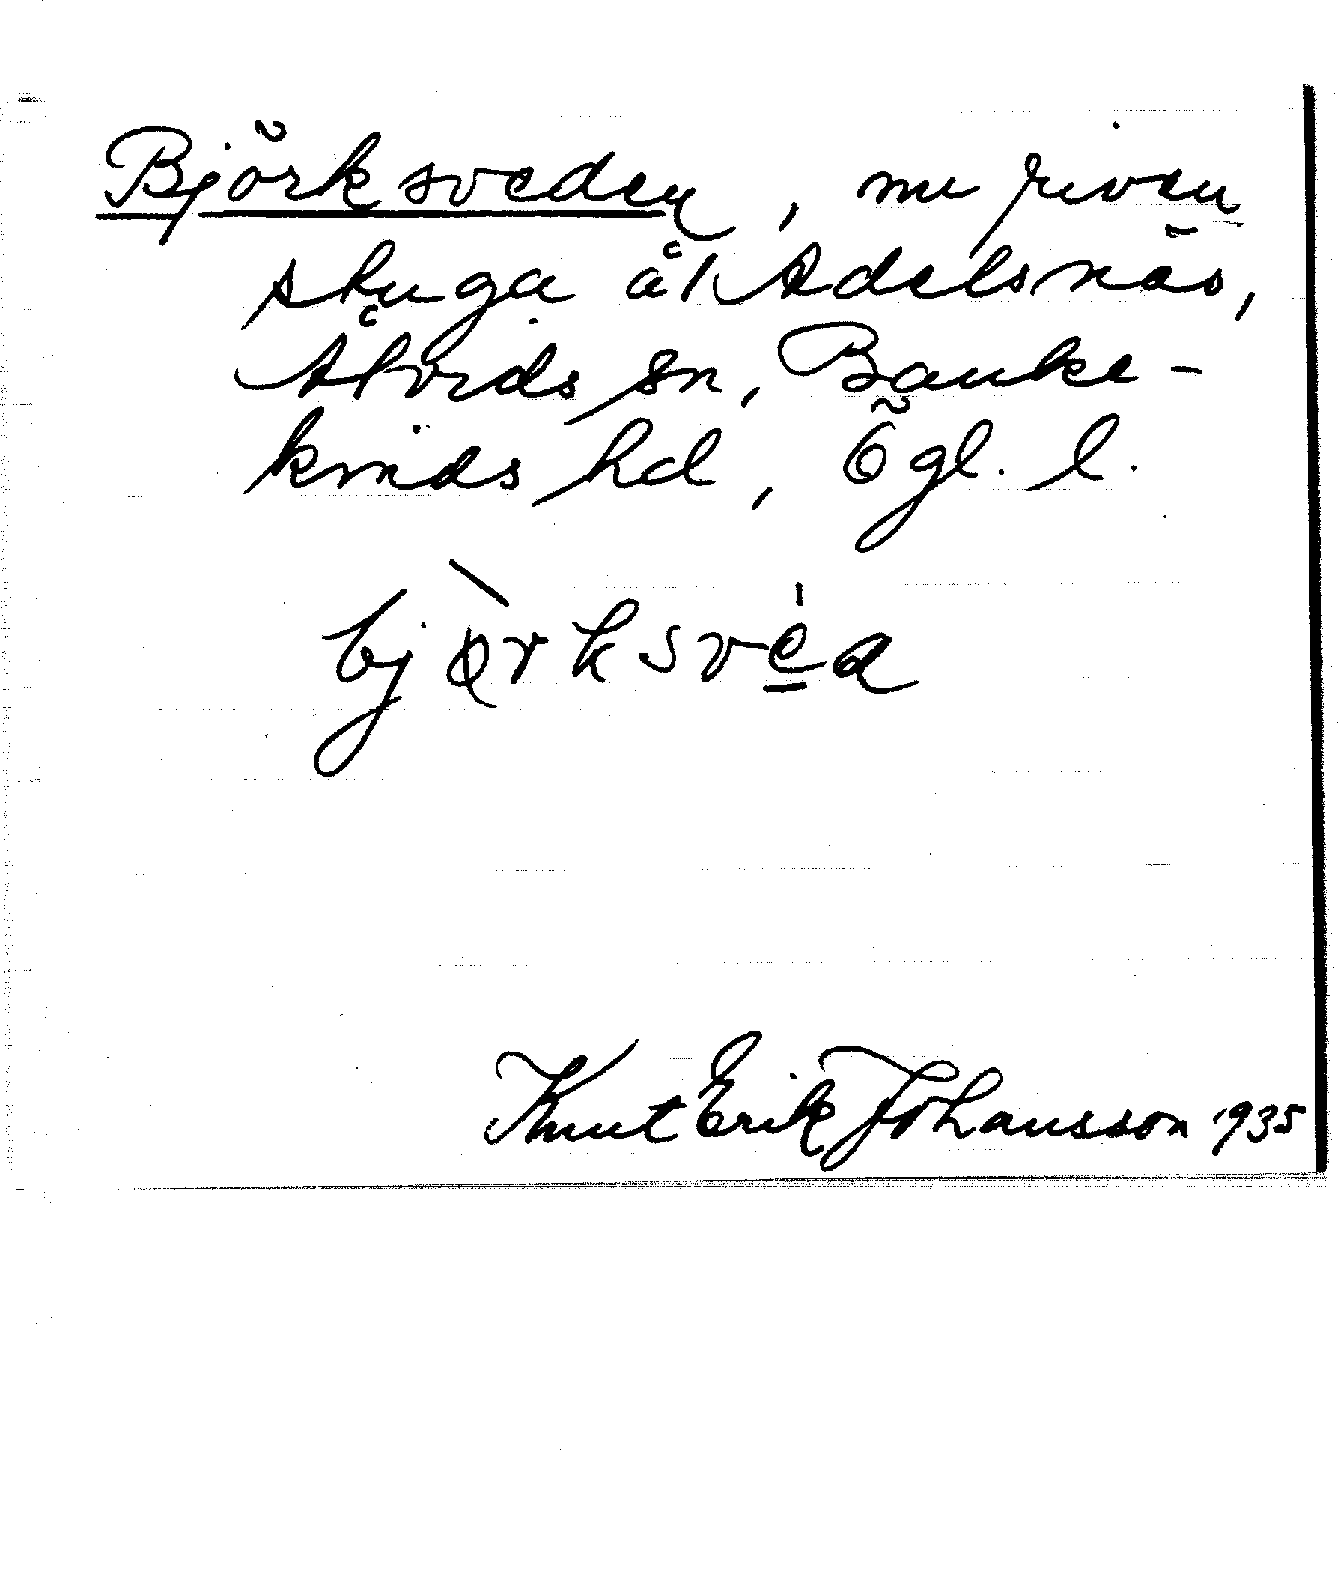 Björksveden, nu riven
stuga åt Adelsnäs,
Åtvids sn, Banke-
kinds hd, Ögl. l.
Knut Erik Johansson 1935